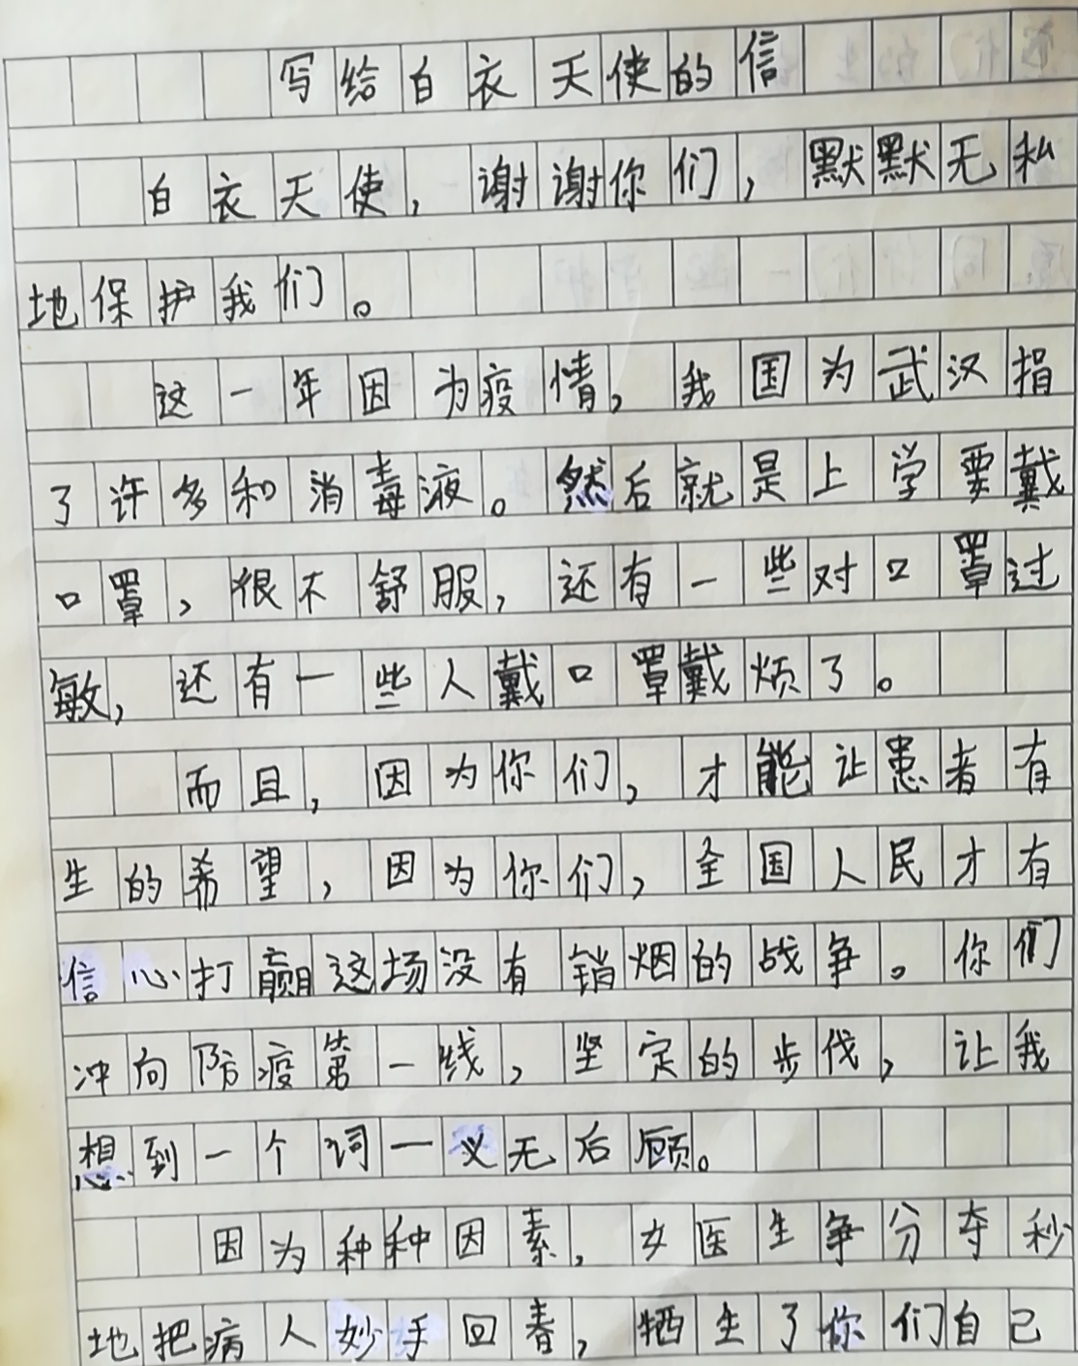 写给白衣天使的信
白衣天使，谢谢你们，默默无私
地保护我们。
这一年因为疫情，我国为武汉捐
了许多和消毒液。然后就是上学要戴
口罩，很不舒服，还有一些对口罩过
敏，还有一些人戴口罩戴烦了。
而且，因为你们，才能让患者有
生的希望，因为你们，全国人民才有
信心打赢这场没有销烟的战争。你们
冲向防疫第一线，坚定的步伐，让我
想到一个词一义无后顾。
因为种种因素，女医生争分夺秒
地把病人妙手回春，牺生了你们自己